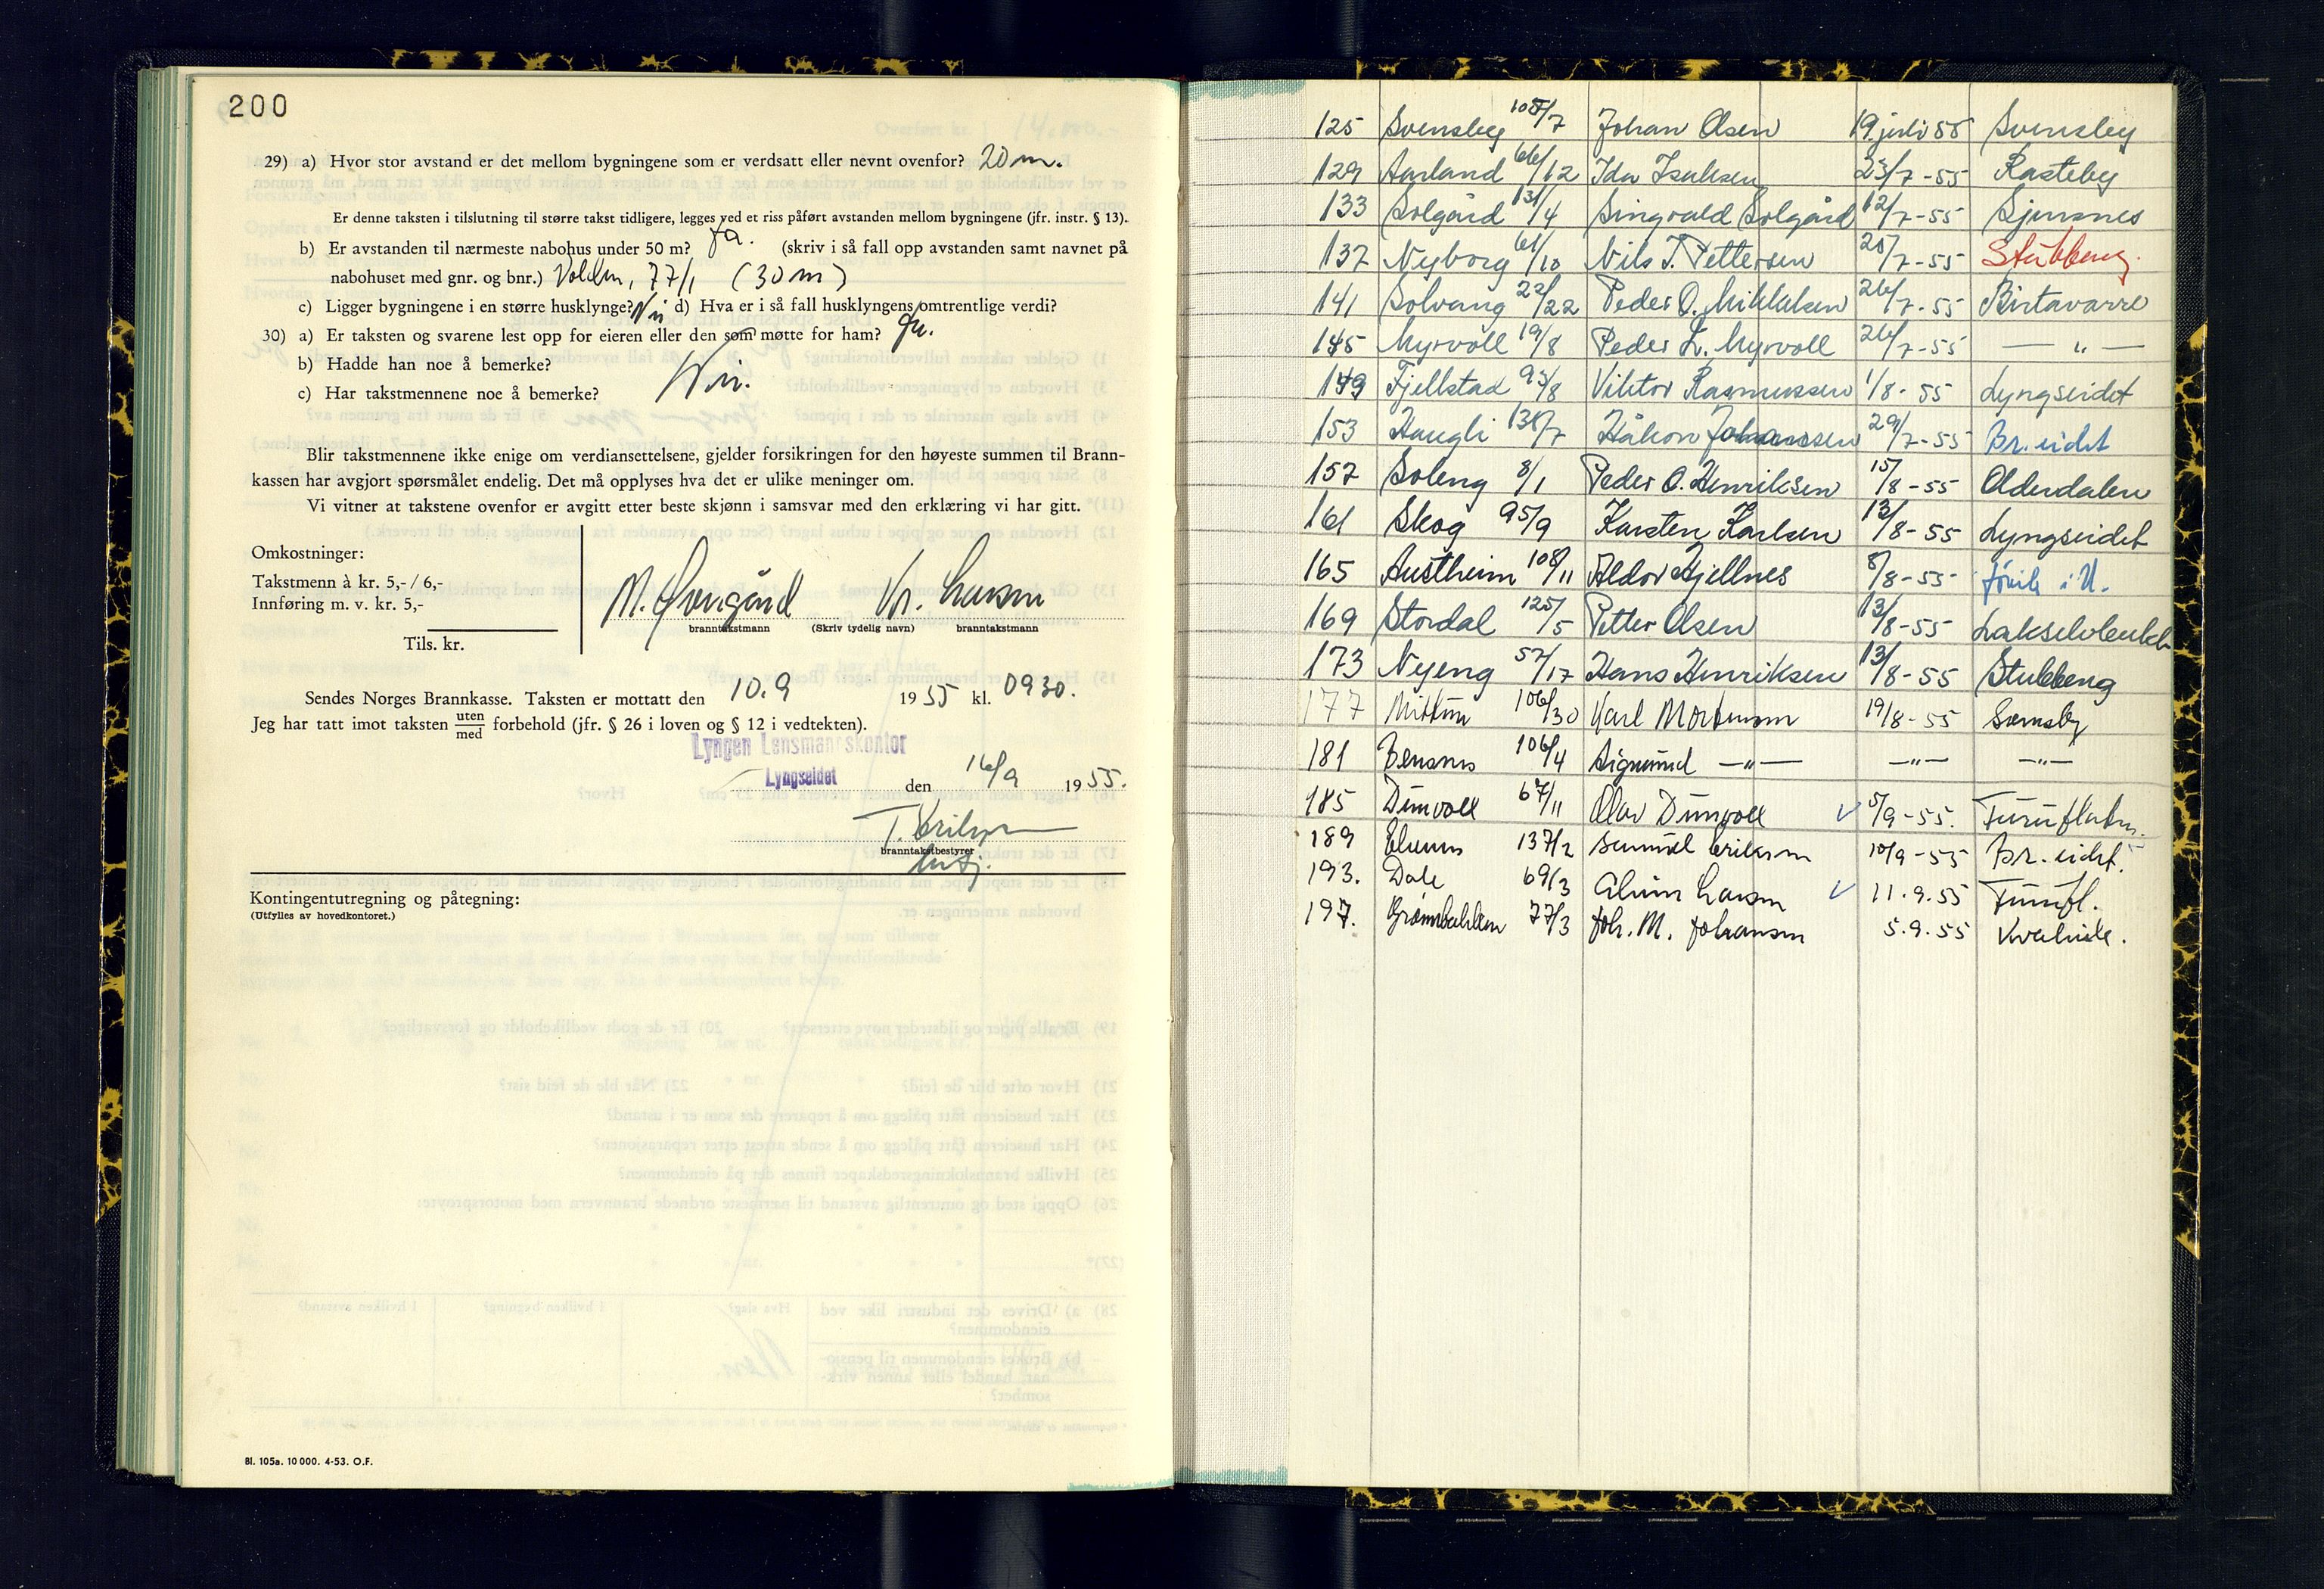 200
29) a) Hvor stor avstand er det mellom bygningene som er verdsatt eller nevnt ovenfor? 20 m.
Er denne taksten i tilslutning til større takst tidligere, legges ved et riss påført avstanden mellom bygningene (jfr. instr. § 13).
b) Er avstanden til nærmeste nabohus under 50 m? Ja. (skriv i så fall opp avstanden samt navnet på
nabohuset med gnr. og bnr.) 77/1 (30 m)
c) Ligger bygningene i en større husklynge? Nei d) Hva er i så fall husklyngens omtrentlige verdi?
30) a) Er taksten og svarene lest opp for eieren eller den som møtte for ham? Ja.
b) Hadde han noe å bemerke?
c) Har takstmennene noe å bemerke? Nei.
Blir takstmennene ikke enige om verdiansettelsene, gjelder forsikringen for den høyeste summen til Brann-
kassen har avgjort spørsmålet endelig. Det må opplyses hva det er ulike meninger om.
Vi vitner at takstene ovenfor er avgitt etter beste skjønn i samsvar med den erklæring vi har gitt.
Omkostninger:
Takstmenn à kr. 5,- / 6,-
Innføring m. v. kr. 5,-
Tils. kr.
M. Kr. Larsen
branntakstmann (Skriv tydelig navn) branntakstmann
Sendes Norges Brannkasse. Taksten er mottatt den 10.9 1955 kl. 0930.
Jeg har tatt imot taksten uten/med forbehold (jfr. § 26 i loven og § 12 i vedtekten).
Lyngen Lensmannskontor
Lyngseidet den 16/9 1955.
branntakstbestyrer
Kontingentutregning og påtegning:
(Utfylles av hovedkontoret.)
Bl. 105a. 10 000. 4-53. O.F.
125 Svensby 105/7 Johan Olsen 19. juli 55 Svensby
129 Aarland 66/12 Ida Isaksen 23/7-55 Rasteby
133 Solgård 131/4 Singvald Solgård 12/7-55 Sjursnes
137 Nyborg 61/10 Nils J. Pettersen 20/7-55 Stubbeng.
141 Solvang 22/22 Peder O. Mikkelsen 26/7-55 Birtavarre
145 Myrvoll 19/8 Peder L. Myrvoll 26/7-55 — " —
149 Fjellstad 93/8 Viktor Rasmussen 1/8-55 Lyngseidet
153 Haugli 138/7 Håkon Johanssen 29/7-55 Br. eidet
157 Soleng 8/1 Peder O. Henriksen 15/8-55 Olderdalen
161 Skog 95/9 Karsten Karlsen 13/8-55 Lyngseidet
165 Austheim 108/11 Aldor Kjellnes 8/8-55
169 Stordal 125/5 Petter Olsen 13/8-55
173 Nyeng 57/17 Hans Henriksen 13/8-55 Stubbeng
177 106/30 Karl Mortensen 19/8-55 Svensby
181 Bensnes 106/4 Sigmund — " — — " — — " —
185 Dunvoll 67/11 Olav Dunvoll 5/9-55. Furuflaten.
189 Elvenes 137/2 Samuel Eriksen 10/9-55 Br. eidet.
193. Dale 69/3 Larsen 11.9.55 Furufl.
197. 77/3 Joh. M. Johansen 5.9.55 Kvalvik.